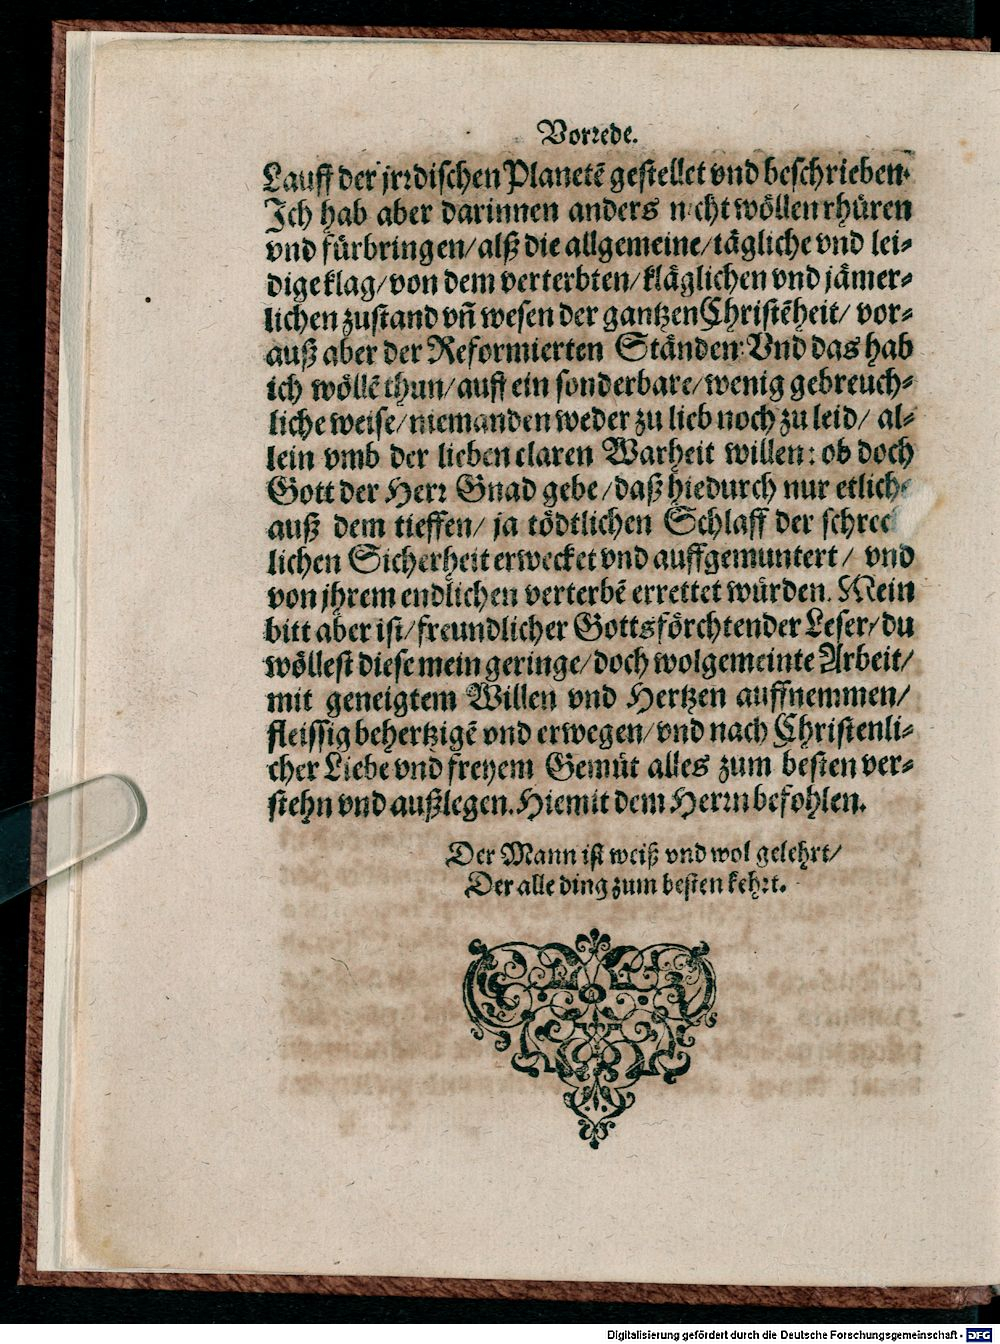 Vorrede.
Lauff der jrrdischen Planetē gestellet vnd beschrieben.
Ich hab aber darinnen anders nicht wöllen rhüren
vnd fürbringen/ alß die allgemeine/ tägliche vnd lei-
dige klag/ von dem verterbten/ kläglichen vnd jämer-
lichen zustand vñ wesen der gantzen Christēheit/ vor-
auß aber der Reformierten Ständen: Vnd das hab
ich wöllē thun/ auff ein sonderbare/ wenig gebreuch-
liche weise/ niemanden weder zu lieb noch zu leid/ al-
lein vmb der lieben claren Warheit willen: ob doch
Gott der Herr Gnad gebe/ daß hiedurch nur etliche
auß dem tieffen/ ja tödtlichen Schlaff der schreck
lichen Sicherheit erwecket vnd auffgemuntert/ vnd
von jhrem endlichen verterbē errettet würden. Mein
bitt aber ist/ freundlicher Gottsförchtender Leser/ du
wöllest diese mein geringe/ doch wolgemeinte Arbeit/
mit geneigtem Willen vnd Hertzen auffnemmen/
fleissig behertzigē vnd erwegen/ vnd nach Christenli-
cher Liebe vnd freyem Gemüt alles zum besten ver-
stehn vnd außlegen. Hiemit dem Herrn befohlen.
Der Mann ist weiß vnd wol gelehrt/
Der alle ding zum besten kehrt.
Digitalisierung gefördert durch die Deutsche Forschungsgemeinschaft - DFG